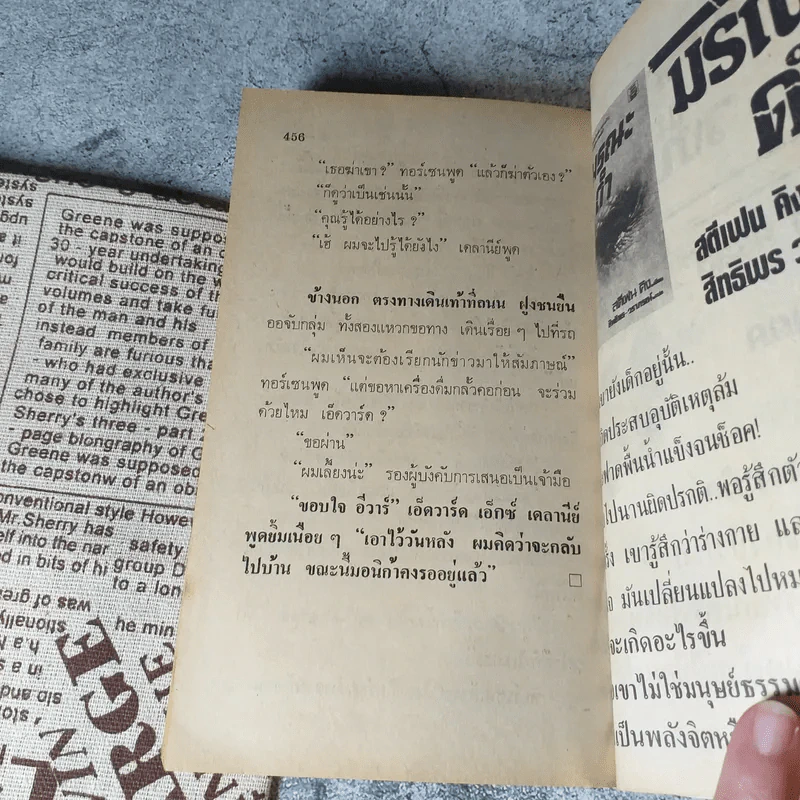 456
"เธอฆ่าเขา?" ทอร์เซนพูด "แล้วก็ฆ่าตัวเอง?"
"ก็ดูว่าเป็นเช่นนั้น"
"คุณรู้ได้อย่างไร ?"
"เฮ้ ผมจะไปรู้ได้ยังไง" เคลานีย์พูด
ข้างนอก ตรงทางเดินเท้าที่ถนน ฝูงชนยืน
ออจับกลุ่ม ทั้งสองแหวกขอทาง เดินเรื่อย ๆ ไปที่รถ
"ผมเห็นจะต้องเรียกนักข่าวมาให้สัมภาษณ์"
ทอร์เซนพูด "แต่ขอหาเครื่องดื่มกลั้วคอก่อน จะร่วม
ด้วยไหม เอ็ดวาร์ด ?"
"ขอผ่าน"
"ผมเลี้ยงน่ะ" รองผู้บังคับการเสนอเป็นเจ้ามือ
"ขอบใจ อีวาร์" เอ็ดวาร์ด เอ็กซ์ เดลานีย์
พูดยิ้มเนือย ๆ "เอาไว้วันหลัง ผมคิดว่าจะกลับ
ไปบ้าน ขณะนี้มอนิก้าคงรออยู่แล้ว"
สตีเฟน คิง
สิทธิพร
ยายังเด็กอยู่นั้น..
ประสบอุบัติเหตุล้ม
ฟาดพื้นน้ำแข็งจนช็อค!
ไปนานผิดปรกติ..พอรู้สึกตัว
เขารู้สึกว่าร่างกาย
มันเปลี่ยนแปลงไปหม
จะเกิดอะไรขึ้น
เขาไม่ใช่มนุษย์ธรรม
เป็นพลังจิตหรื
Greene was suppos
the capstone of an
30 - year undertaking
would build on the w
critical success of th
volumes and take fu
of the man and his
instead members of
family are furious tha
- who had exclusive
many of the author's
chose to highlight Gre
Sherry's three - part
page blongraphy of G
Greene was supposed
the capstonw of an ob
onventional style Howev
Mr.Sherry has safety
elf into the nar group D
d in bits of hi to a lon
he min